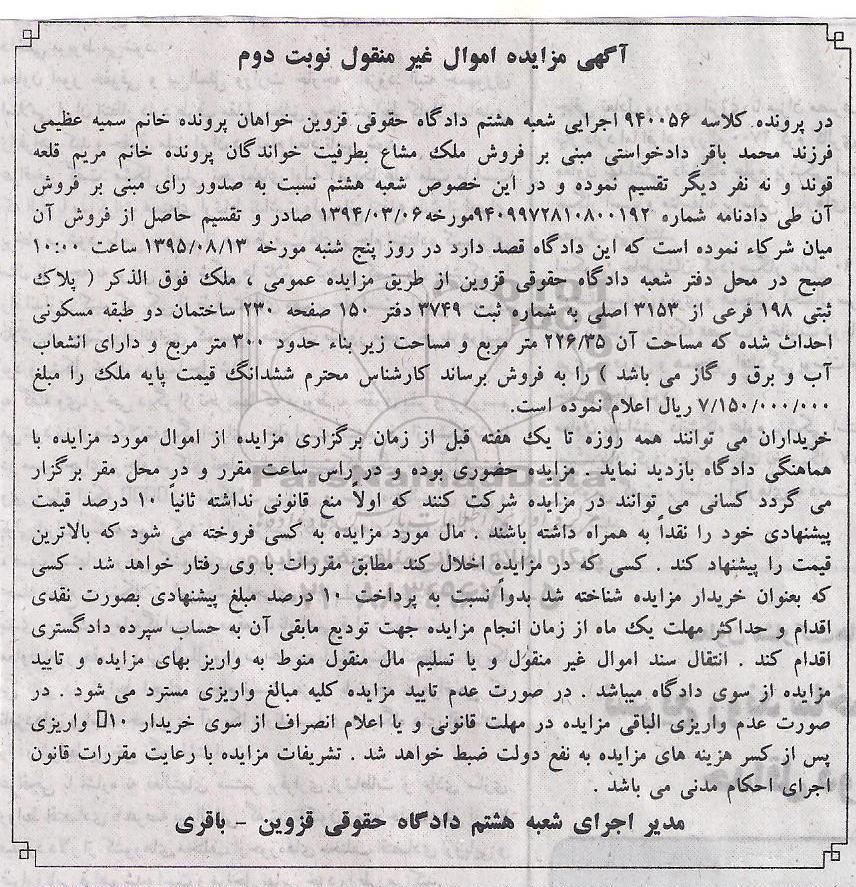 آگهی مزایده اموال غیر منقول نوبت دوم
در پرونده کلاسه ۹۴۰۰۵۶ اجرایی شعبه هشتم دادگاه حقوقی قزوین خواهان پرونده خانم سمیه عظیمی
فرزند محمد باقر دادخواستی مبنی بر فروش ملک مشاع بطرفیت خواندگان پرونده خانم مریم قلعه
قوند و نه نفر دیگر تقسیم نموده و در این خصوص شعبه هشتم نسبت به صدور رای مبنی بر فروش
آن طی دادنامه شماره ۹۴۰۹۹۷۲۸۱۰۸۰۰۱۹۲مورخه۱۳۹۴/۰۳/۰۶ صادر و تقسیم حاصل از فروش آن
میان شرکاء نموده است که این دادگاه قصد دارد در روز پنج شنبه مورخه ۱۳۹۵/۰۸/۱۳ ساعت ۱۰:۰۰
صبح در محل دفتر شعبه دادگاه حقوقی قزوین از طریق مزایده عمومی ، ملک فوق الذکر ( پلاک
ثبتی ۱۹۸ فرعی از ۳۱۵۳ اصلی به شماره ثبت ۳۷۴۹ دفتر ۱۵۰ صفحه ۲۳۰ ساختمان دو طبقه مسکونی
احداث شده که مساحت آن ۲۲۶/۳۵ متر مربع و مساحت زیر بناء حدود ۳۰۰ متر مربع و دارای انشعاب
آب و برق و گاز می باشد ) را به فروش برساند کارشناس محترم ششدانگ قیمت پایه ملک را مبلغ
۷/۱۵۰/۰۰۰/۰۰۰ ریال اعلام نموده است.
خریداران می توانند همه روزه تا یک هفته قبل از زمان برگزاری مزایده از اموال مورد مزایده با
هماهنگی دادگاه بازدید نماید . مزایده حضوری بوده و در راس ساعت مقرر و در محل مقر برگزار
می گردد کسانی می توانند در مزایده شرکت کنند که اولاً منع قانونی نداشته ثانیاً ۱۰ درصد قیمت
پیشنهادی خود را نقداً به همراه داشته باشند . مال مورد مزایده به کسی فروخته می شود که بالاترین
قیمت را پیشنهاد کند . کسی که در مزایده اخلال کند مطابق مقررات با وی رفتار خواهد شد . کسی
که بعنوان خریدار مزایده شناخته شد بدواً نسبت به پرداخت ۱۰ درصد مبلغ پیشنهادی بصورت نقدی
اقدام و حداکثر مهلت یک ماه از زمان انجام مزایده جهت تودیع مابقی آن به حساب سپرده دادگستری
اقدام کند . انتقال سند اموال غیر منقول و یا تسلیم مال منقول منوط به واریز بهای مزایده و تایید
مزایده از سوی دادگاه میباشد . در صورت عدم تایید مزایده کلیه مبالغ واریزی مسترد می شود . در
صورت عدم واریزی الباقی مزایده در مهلت قانونی و یا اعلام انصراف از سوی خریدار ۱۰▯ واریزی
پس از کسر هزینه های مزایده به نفع دولت ضبط خواهد شد . تشریفات مزایده با رعایت مقررات قانون
اجرای احکام مدنی می باشد .
مدیر اجرای شعبه هشتم دادگاه حقوقی قزوین - باقری